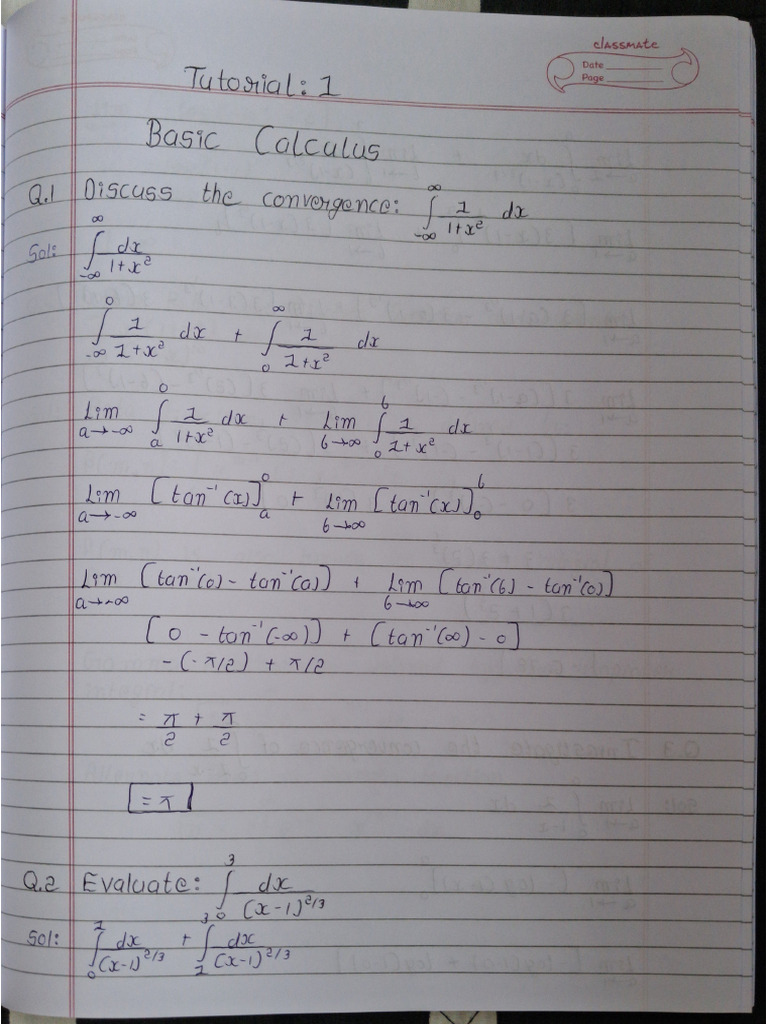 classmate
Date
Page
Tutorial: 1
Basic Calculus
Q.1 Discuss the convergence: ∫_{-∞}^{∞} 1/(1+x²) dx
Sol: ∫_{-∞}^{∞} dx/(1+x²)
∫_{-∞}^{0} 1/(1+x²) dx + ∫_{0}^{∞} 1/(1+x²) dx
Lim_{a→-∞} ∫_{a}^{0} 1/(1+x²) dx + Lim_{b→∞} ∫_{0}^{b} 1/(1+x²) dx
Lim_{a→-∞} [tan⁻¹(x)]_{a}^{0} + Lim_{b→∞} [tan⁻¹(x)]_{0}^{b}
Lim_{a→-∞} [tan⁻¹(0) - tan⁻¹(a)) + Lim_{b→∞} [tan⁻¹(b) - tan⁻¹(0)]
[0 - tan⁻¹(-∞)) + (tan⁻¹(∞) - 0]
-(-π/2) + π/2
= π/2 + π/2
= π
Q.2 Evaluate: ∫_{0}^{3} dx/(x-1)^{2/3}
Sol: ∫_{0}^{1} dx/(x-1)^{2/3} + ∫_{1}^{3} dx/(x-1)^{2/3}